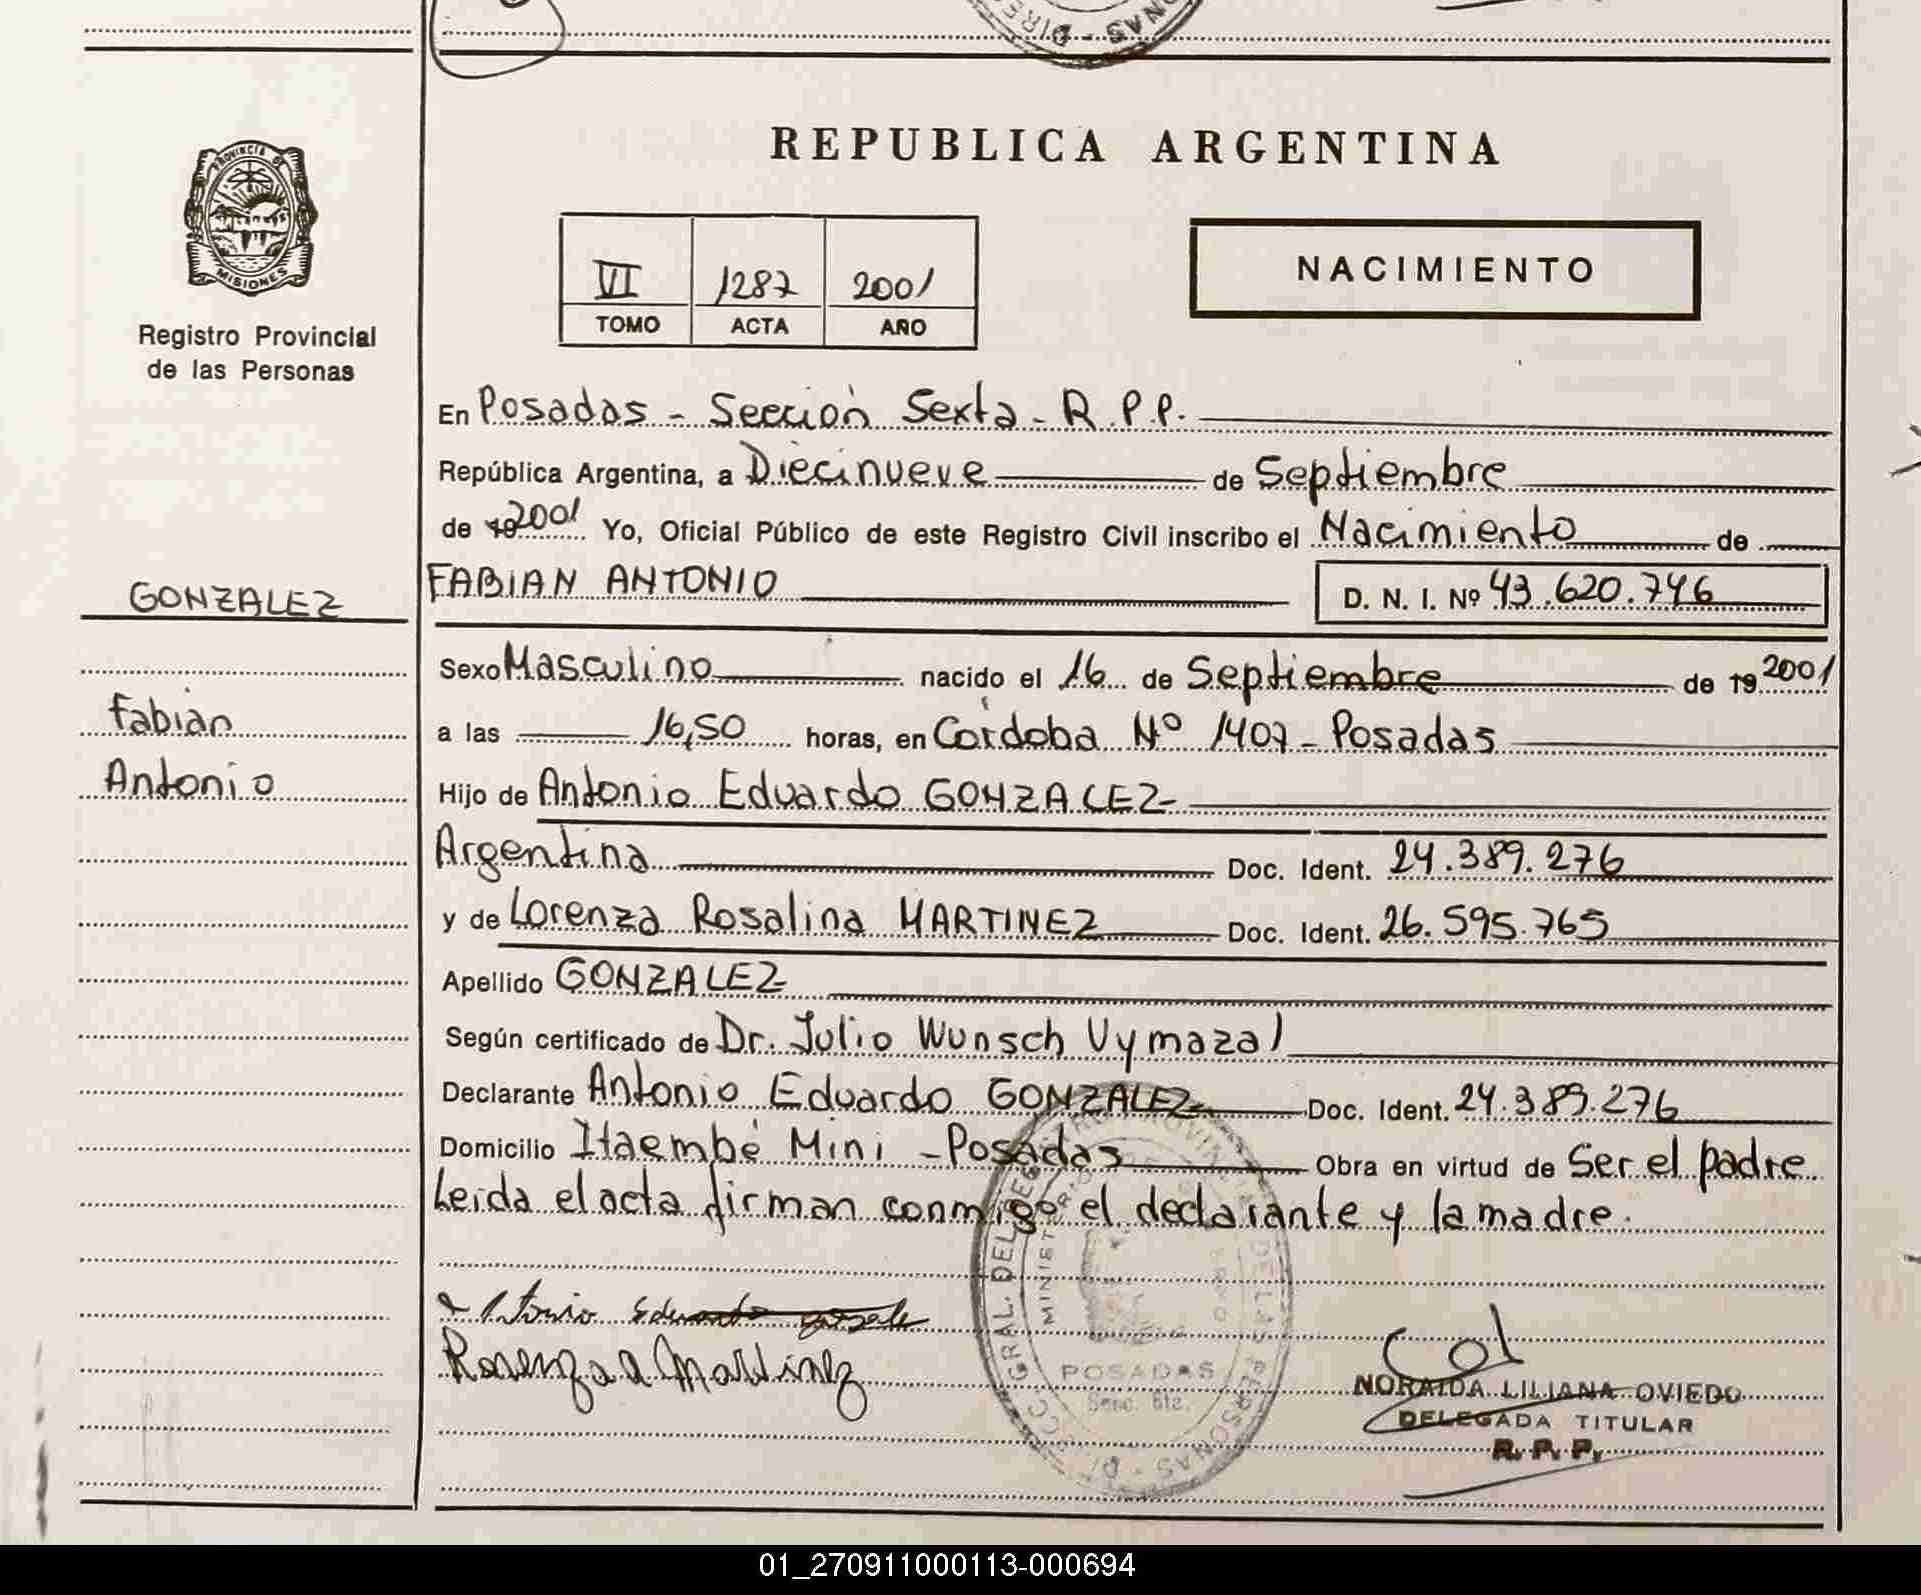 REPUBLICA ARGENTINA
PROVINCIA DE
MISIONES
Registro Provincial
de las Personas
VI 1287 2001
TOMO ACTA AÑO
NACIMIENTO
En Posadas - Sección Sexta - R.P.P.
República Argentina, a Diecinueve de Septiembre
de 19 2001 Yo, Oficial Público de este Registro Civil inscribo el Nacimiento de
GONZALEZ
FABIAN ANTONIO D. N. I. Nº 43.620.746
Sexo Masculino nacido el 16 de Septiembre de 19 2001
Fabián
a las 16,50 horas, en Córdoba Nº 1407 - Posadas
Antonio
Hijo de Antonio Eduardo GONZALEZ
Argentina Doc. Ident. 24.389.276
y de Lorenza Rosalina MARTINEZ Doc. Ident. 26.595.765
Apellido GONZALEZ
Según certificado de Dr. Julio Wunsch Vymazal
Declarante Antonio Eduardo GONZALEZ Doc. Ident. 24.389.276
Domicilio Itaembé Mini - Posadas Obra en virtud de Ser el padre
Leida el acta firman conmigo el declarante y la madre.
Antonio Eduardo
Martinez
POSADAS
Secc. 6ta.
NORAIDA LILIANA OVIEDO
DELEGADA TITULAR
R. P. P.
01_270911000113-000694